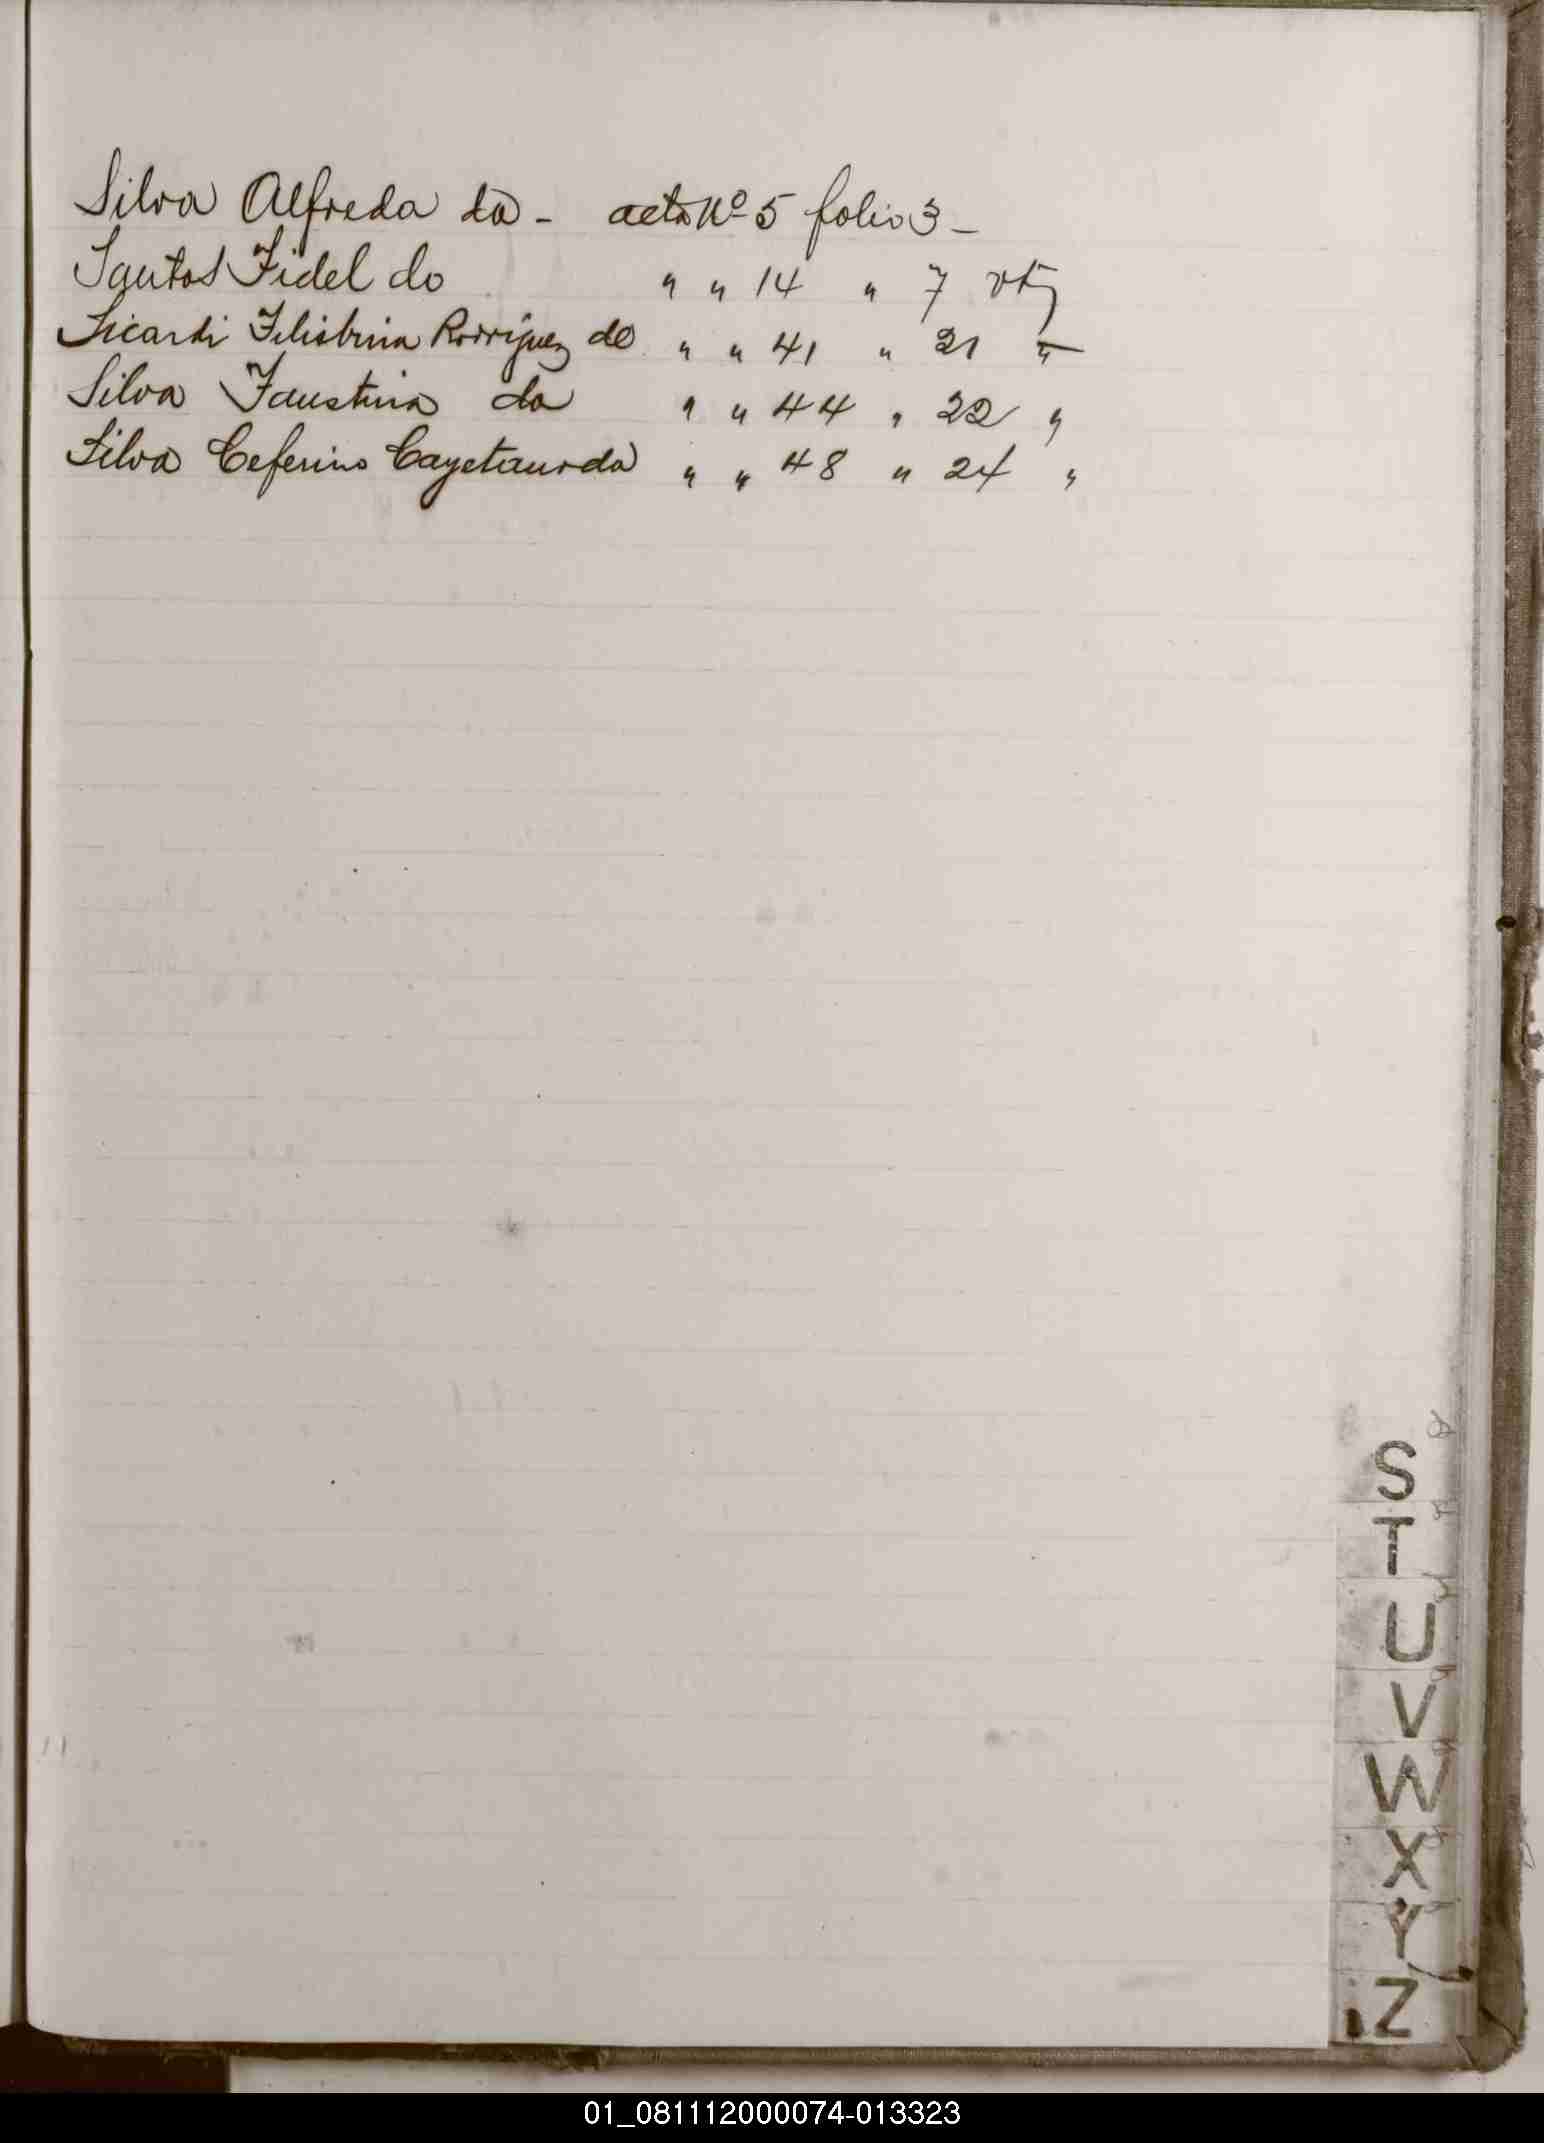 Silva Alfreda da - acta Nº 5 folio 3 -
Santos Fidel do " " 14 " 7 vta
Sicardi Rodriguez de " " 41 " 21 "
Silva Faustina da " " 44 " 22 "
Silva Ceferino Cayetano da " " 48 " 24 "
S
T
U
V
W
X
Y
Z
01_081112000074-013323